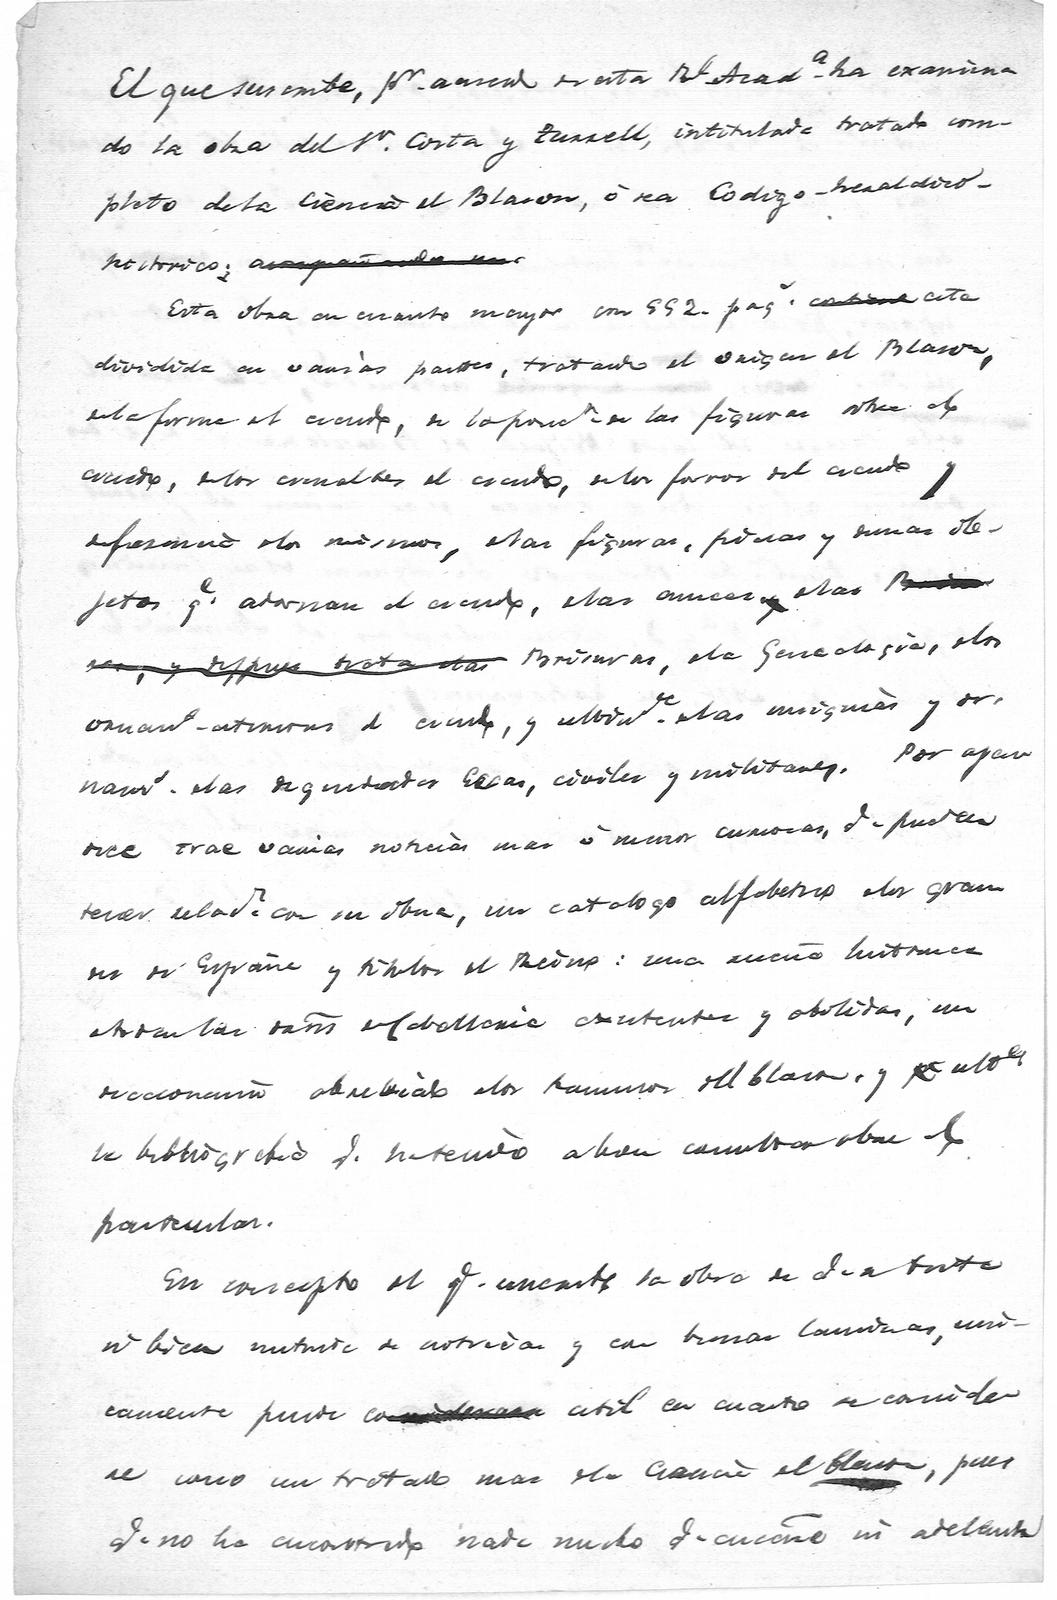 El que suscribe, pr. acuerdo de esta Rl. Acada. ha examina
do la obra del Sr. Costa y Turrell, intitulada tratado com-
pleto dela Ciencia del Blason, ó sea Codigo-heraldico-
historico; acompañado un
Esta obra en cuarto mayor con 552. pags. contiene esta
dividida en varias partes, tratando del origen del Blason,
dela forma del escudo, de la posicn. de las figuras sobre el
escudo, delos esmaltes del escudo, delos forros del escudo y
diferencia delos mismos, delas figuras, piezas y demas ob-
jetos qe. adornan el escudo, delas armas y delas Brisu
ras, y despues trata delas Brisuras, dela Genealogia, delos
ornamts. esteriores del escudo, y delas insignias y or-
namts. delas dignidades Eccas, civiles y militares. Por apen
dice trae varias noticias mas ó menos curiosas, q. puedan
tener relacn. con su obra, un catalogo alfabetico delos gran
des de España y titulos del Reino: una reseña historica
delas ordens de Caballeria existentes y abolidas, un
diccionario abreviado delos terminos del blason, y
la bibliografia q. ha tenido consultar sobre el
particular.
En concepto del q. suscribe la obra de q. se trata
si bien nutrida de noticias y con buenas laminas, uni-
camente puede considerarse util en cuanto se conside
re como un tratado mas dela Ciencia del blason, pues
q. no ha encontrado nada nuevo q. enseñe ni adelante